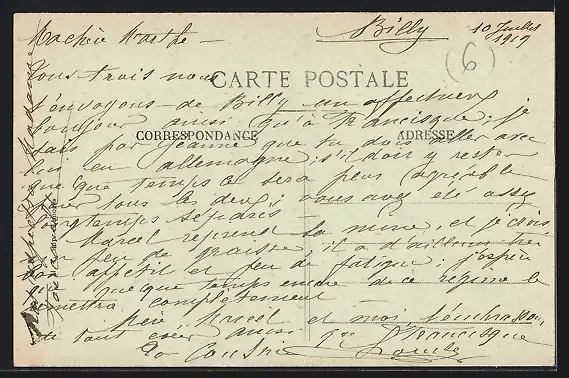 Machère Marthe - Billy 10 Juillet
1919
(6)
Vous trois nous
CARTE POSTALE
t'envoyons de Billy un affectueux
bonjour ainsi qu'à Francisque; je
CORRESPONDANCE ADRESSE
sais par Jeanne que tu dois aller avec
lui en allemagne; s'il doit y rester
quelque temps ce sera plus agréable
pour tous les deux; vous avez été assez
longtemps séparés
Marcel reprend sa mine, et je crois
un peu de graisse; il a d'ailleurs
bon appétit et peu de fatigue; j'espère
que quelque temps encore de ce régime le
remettra complètement
Marcel et moi t'embrassons
de tout cœur ainsi que Francisque
Ta Cousine